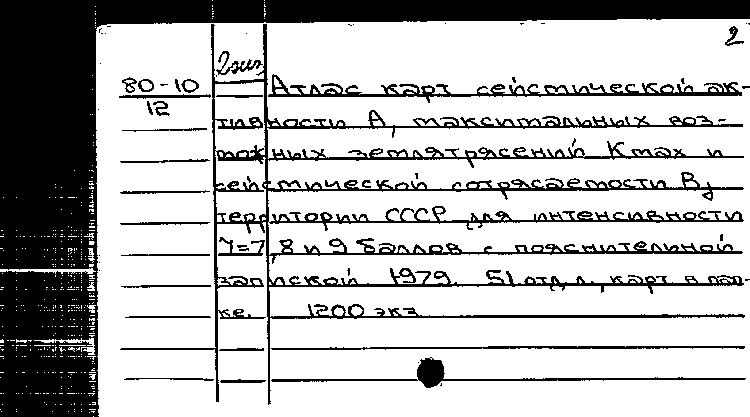 2
2 экз
80-10 Атлас карт сейсмической ак-
12
тивности А, максимальных воз-
можных землятрясений Kmax и
сейсмической сотрясаемости Bj
территории СССР для интенсивности
7=7, 8 и 9 баллов с пояснительной
запиской. 1979. 51 отд. л., карт в пап-
ке. 1200 экз